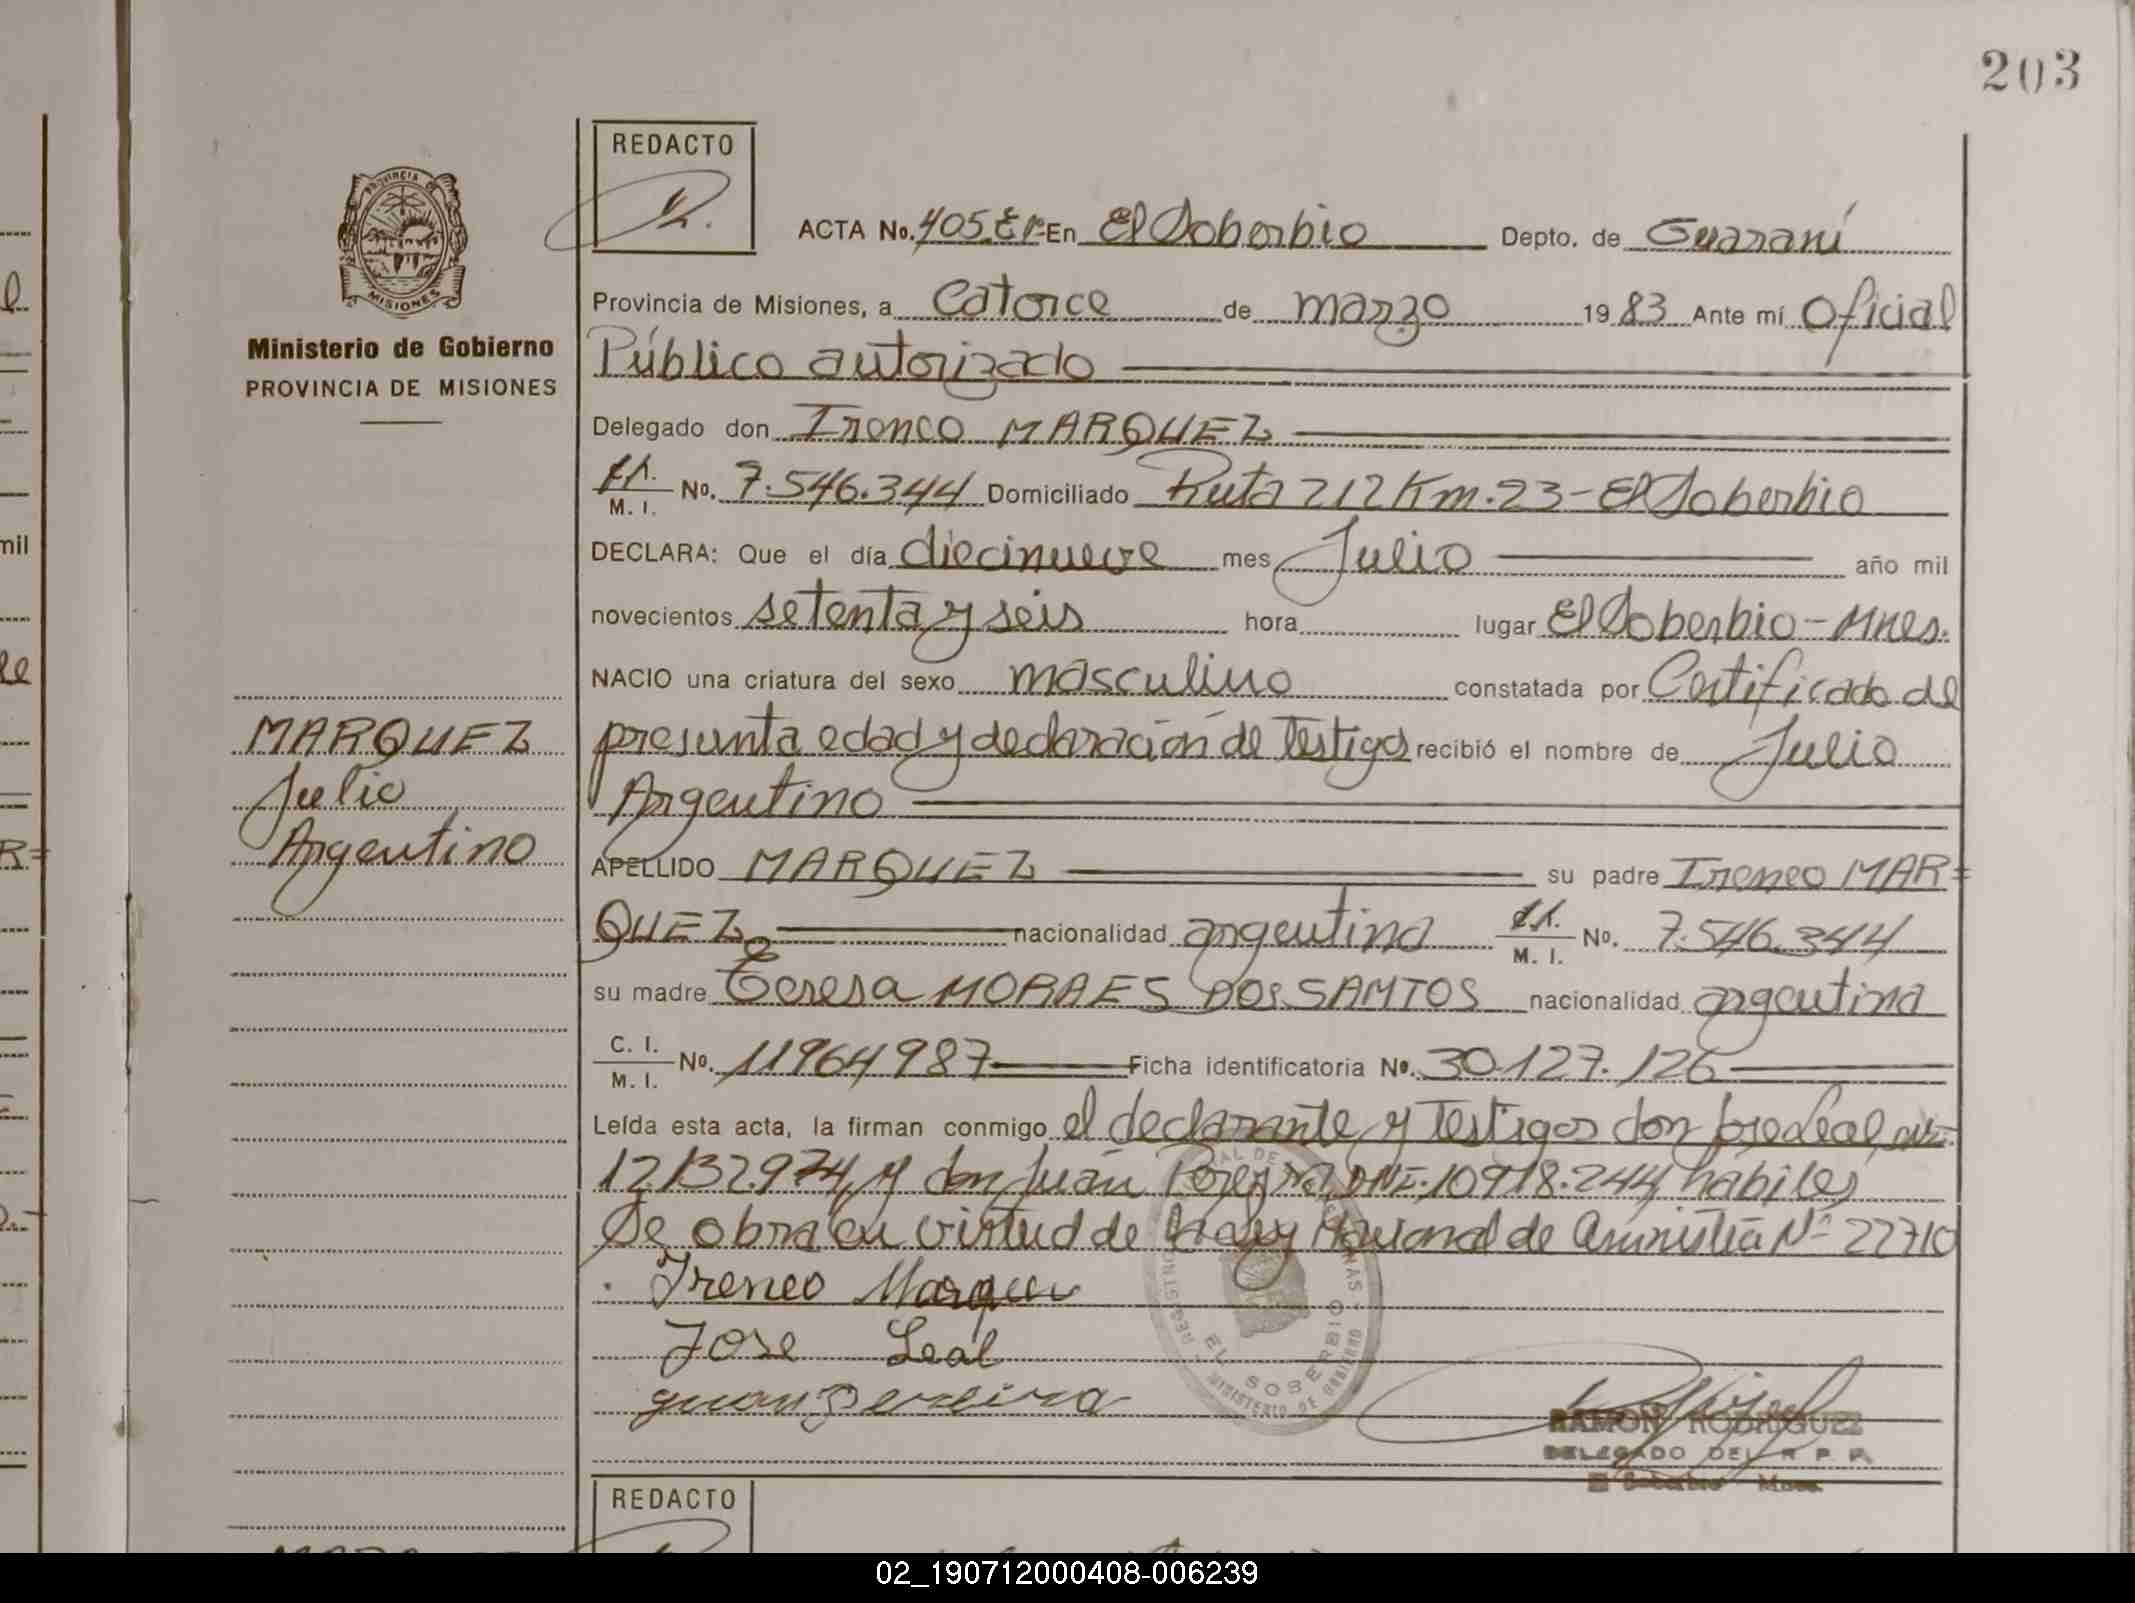 203
REDACTO
ACTA No. 405. En El Soberbio Depto. de Guaraní
Provincia de Misiones, a Catorce de marzo 1983 Ante mí Oficial
Público autorizado
Ministerio de Gobierno
PROVINCIA DE MISIONES
Delegado don Ireneo MARQUEZ
M. I. No. 7.546.344 Domiciliado Ruta 212 Km. 23 - El Soberbio
DECLARA: Que el día diecinueve mes Julio año mil
novecientos setenta y seis hora lugar El Soberbio - Mnes.
NACIO una criatura del sexo masculino constatada por Certificado de
presunta edad y declaración de Testigos recibió el nombre de Julio
Argentino
MARQUEZ
Julio
Argentino
APELLIDO MARQUEZ su padre Ireneo MAR=
QUEZ nacionalidad argentino M. I. No. 7.546.344
su madre Teresa MORAES DOS SANTOS nacionalidad argentina
C. I.
M. I. No. 11964987 Ficha identificatoria No. 30.127.126
Leída esta acta, la firman conmigo el declarante y Testigos don José Leal
12.132.974 y don Juan Pereyra, DNI. 10918.244 hábiles
Se obra en virtud de la Ley Nacional de Aminístia Nº 22710
Ireneo Marquez
Jose Leal
Juan Pereira
EL SOBERBIO
MINISTERIO DE GOBIERNO
RAMON RODRIGUEZ
DELEGADO DEL R. P. P.
El Soberbio Mnes.
REDACTO
02_190712000408-006239